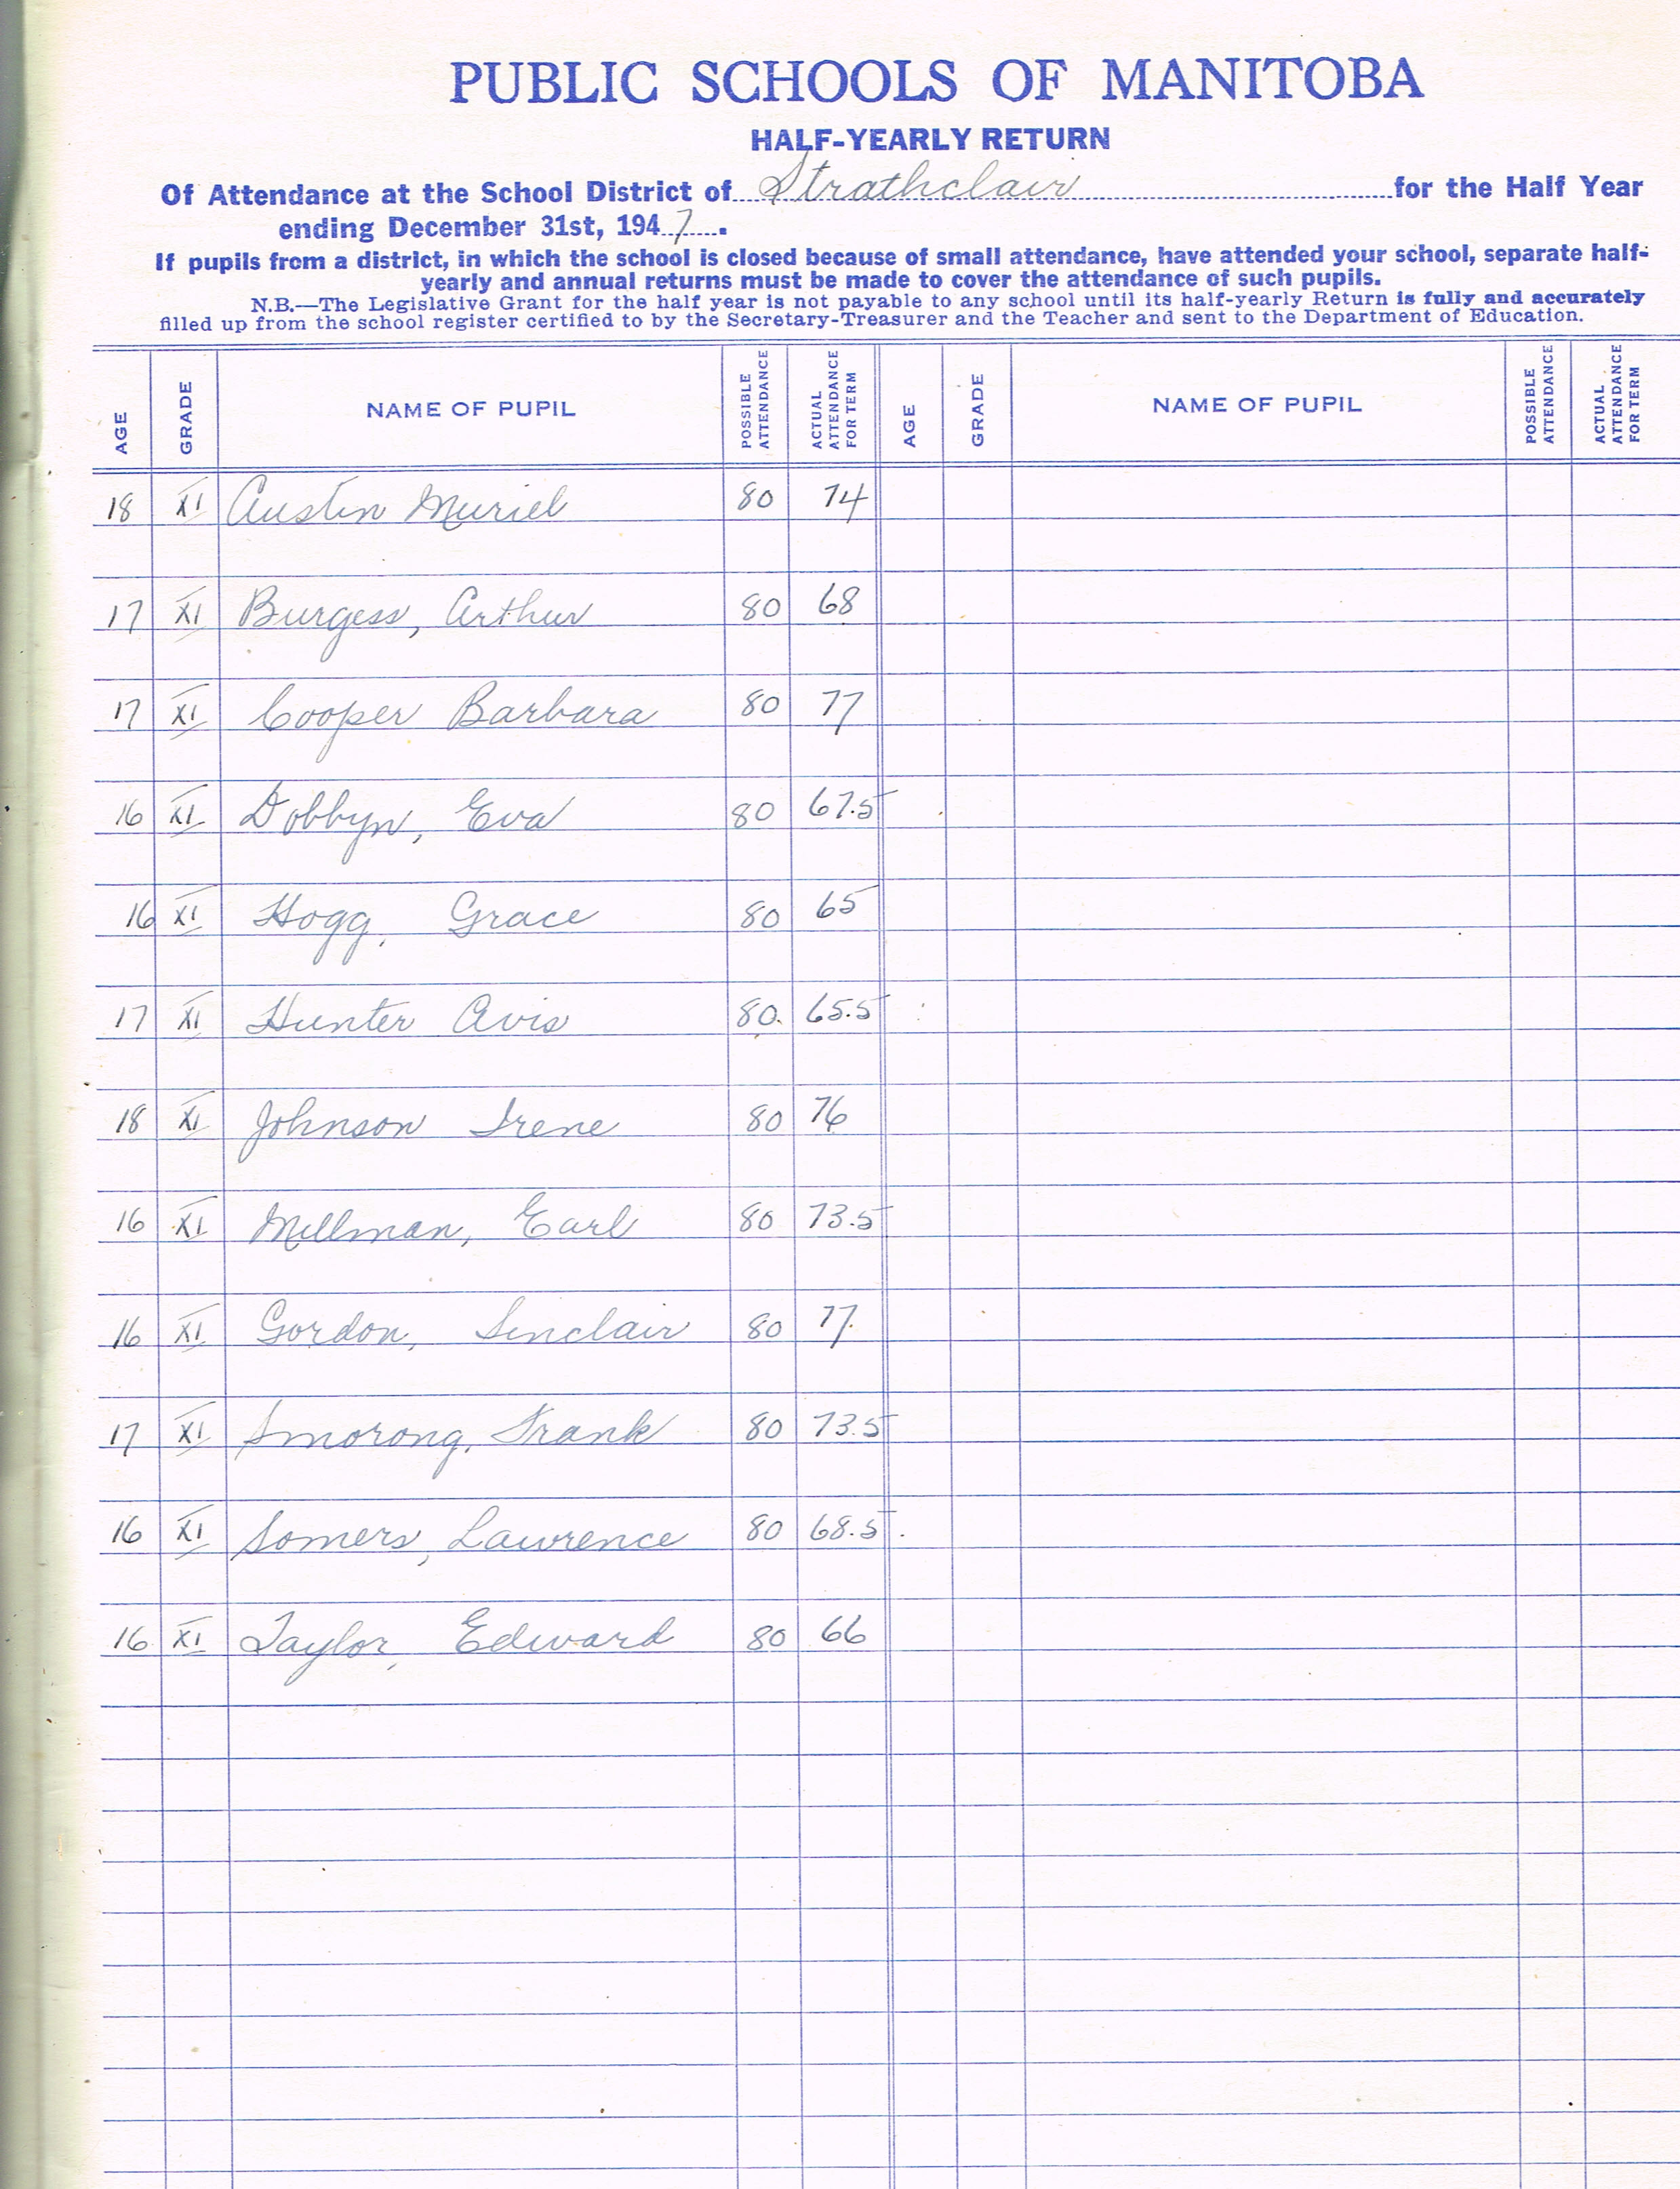 PUBLIC SCHOOLS OF MANITOBA
HALF-YEARLY RETURN
Of Attendance at the School District of Strathclair for the Half Year
ending December 31st, 1947.
If pupils from a district, in which the school is closed because of small attendance, have attended your school, separate half-
yearly and annual returns must be made to cover the attendance of such pupils.
N.B.—The Legislative Grant for the half year is not payable to any school until its half-yearly Return is fully and accurately
filled up from the school register certified to by the Secretary-Treasurer and the Teacher and sent to the Department of Education.
AGE GRADE NAME OF PUPIL POSSIBLE ATTENDANCE ACTUAL ATTENDANCE FOR TERM AGE GRADE NAME OF PUPIL POSSIBLE ATTENDANCE ACTUAL ATTENDANCE FOR TERM
18 XI Austin Muriel 80 74
17 XI Burgess, Arthur 80 68
17 XI Cooper Barbara 80 77
16 XI Dobbyn, Eva 80 67.5
16 XI Hogg, Grace 80 65
17 XI Hunter Avis 80. 65.5
18 XI Johnson Irene 80 76
16 XI Millman, Earl 80 73.5
16 XI Gordon, Sinclair 80 77.
17 XI Smorong, Frank 80 73.5
16 XI Somers, Lawrence 80 68.5
16 XI Taylor, Edward 80 66